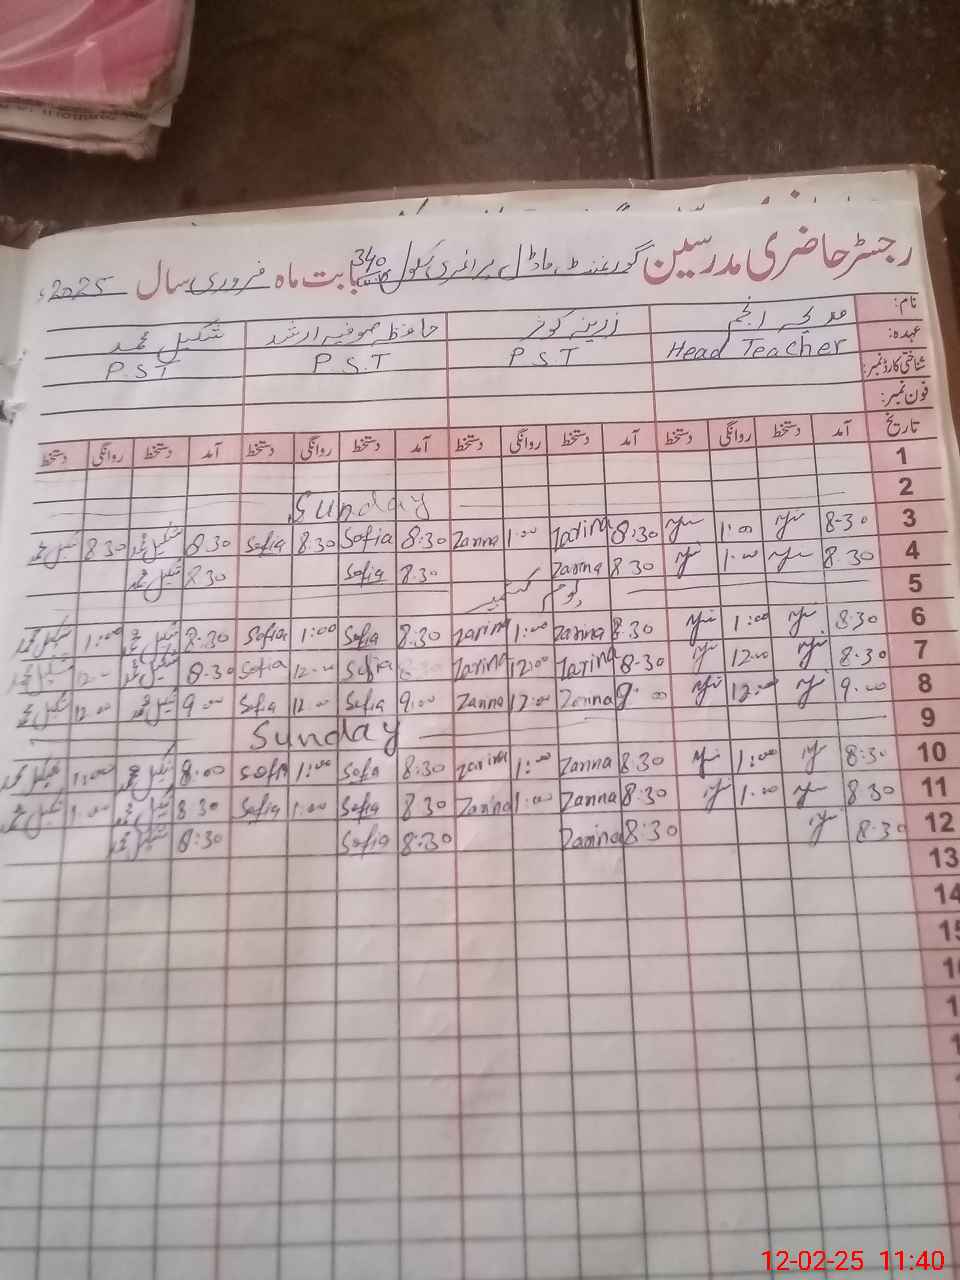 رجسٹر حاضری مدرسین گورنمنٹ ماڈل پرائمری سکول 340 بابت ماہ فروری سال 2025ء
نام: مدیحہ انجم زرینہ کوثر حافظہ صوفیہ ارشد شکیل محمد
عہدہ: Head Teacher P.S.T P.S.T P.S.T
شناختی کارڈ نمبر:
فون نمبر:
تاریخ آمد دستخط روانگی دستخط آمد دستخط روانگی دستخط آمد دستخط روانگی دستخط آمد دستخط روانگی دستخط
1
2 Sunday
3 8-30 1:00 8:30 Zarina 1:00 Zarina 8:30 Sofia 8:30 Sofia 8.30 شکیل محمد 8.30 شکیل محمد
4 8.30 1:00 8.30 Zarina 8.30 Sofia 8.30 شکیل محمد
5 یوم کشمیر
6 8:30 1:00 8.30 Zarina 1:00 Zarina 8:30 Sofia 1:00 Sofia 8:30 شکیل محمد 1:00 شکیل محمد
7 8:30 12:00 8-30 Zarina 12:00 Zarina Sofia 12:00 Sofia 8.30 شکیل محمد 12:00 شکیل محمد
8 9:00 12:00 9:00 Zarina 12:00 Zarina 9:00 Sofia 12:00 Sofia 9:00 شکیل محمد 12:00 شکیل محمد
9 Sunday
10 8:30 1:00 8:30 Zarina 1:00 Zarina 8:30 Sofia 1:00 Sofia 8:00 شکیل محمد 1:00 شکیل محمد
11 8:30 1:00 8:30 Zarina 1:00 Zarina 8.30 Sofia 1:00 Sofia 8:30 شکیل محمد 1:00 شکیل محمد
12 8:30 8:30 Zarina 8:30 Sofia 8:30 شکیل محمد
13
14
12-02-25 11:40